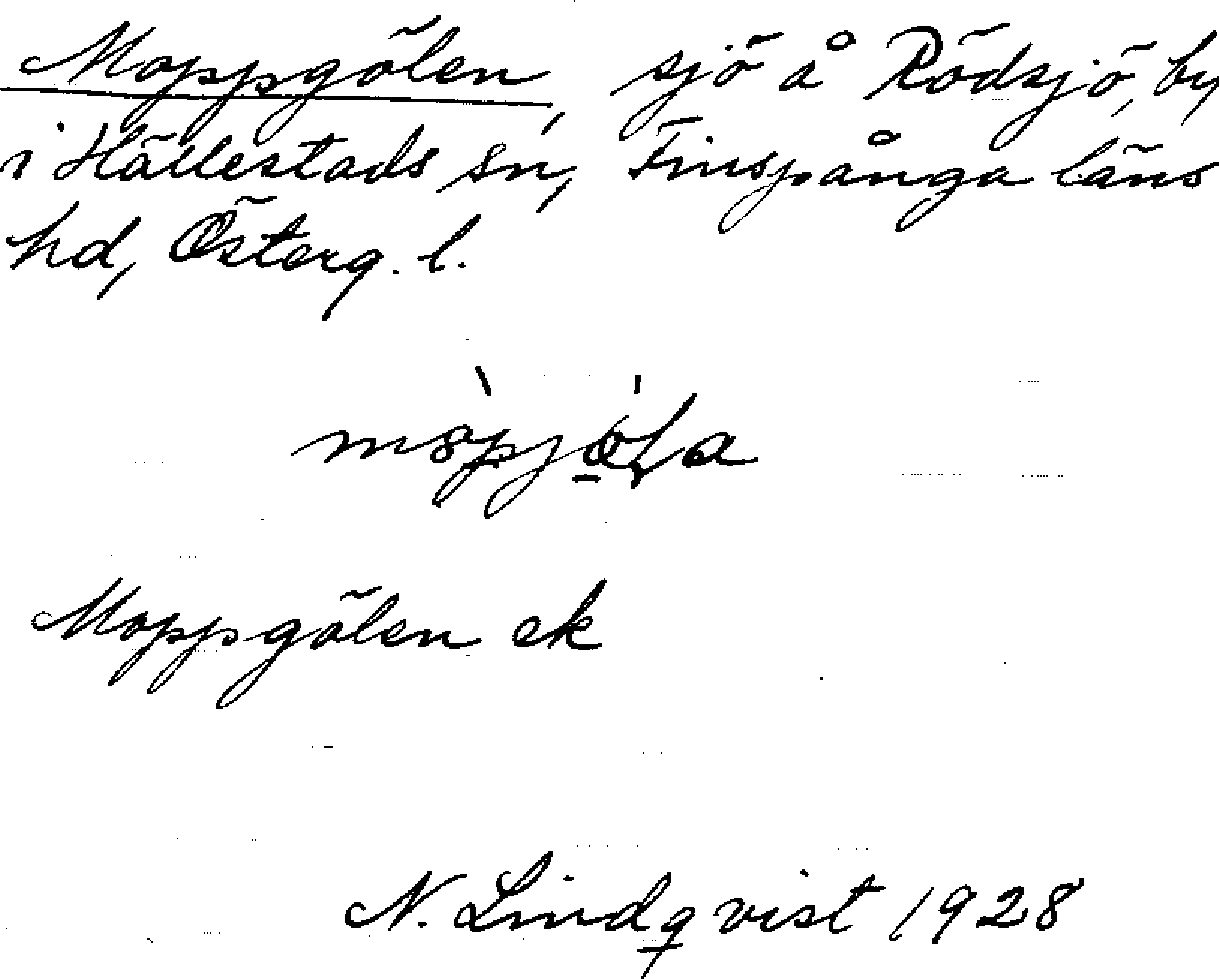 Moppgölen, sjö å Rödsjö, by
i Hällestads sn, Finspånga läns
hd, Österg. l.
Moppgölen ek
N. Lindqvist 1928